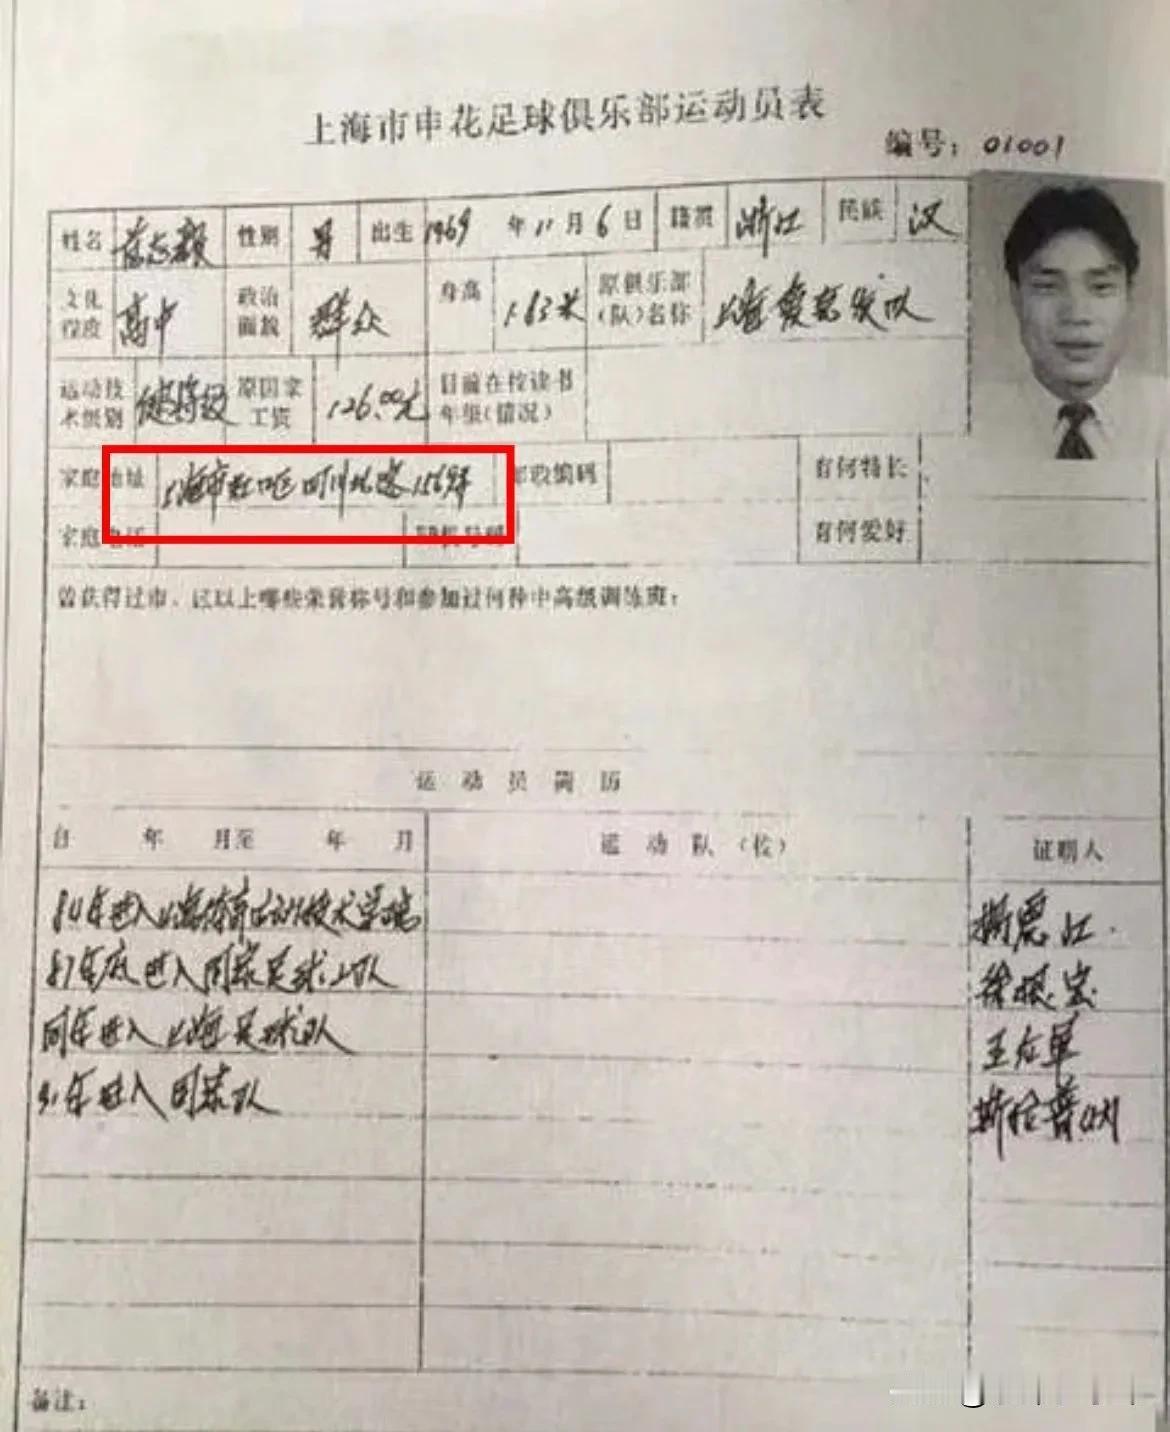 上海市申花足球俱乐部运动员表
编号：01001
姓名 范志毅 性别 男 出生 1969 年 11 月 6 日 籍贯 浙江 民族 汉
文化程度 高中 政治面貌 群众 身高 1.83米 原俱乐部（队）名称 上海
运动技术级别 健将级 原国家工资 126.00元 目前在校读书年级（情况）
家庭地址 上海市虹口区四川北路1569弄 邮政编码 有何特长
家庭电话 号码 有何爱好
曾获得过市、区以上哪些荣誉称号和参加过何种中高级训练班：
运动员简历
自 年 月至 年 月 运动队（校） 证明人
84年进入上海体育运动技术学院
87年底进入国家足球二队 徐根宝
同年进入上海足球队
91年进入国家队 斯拉普纳
备注：